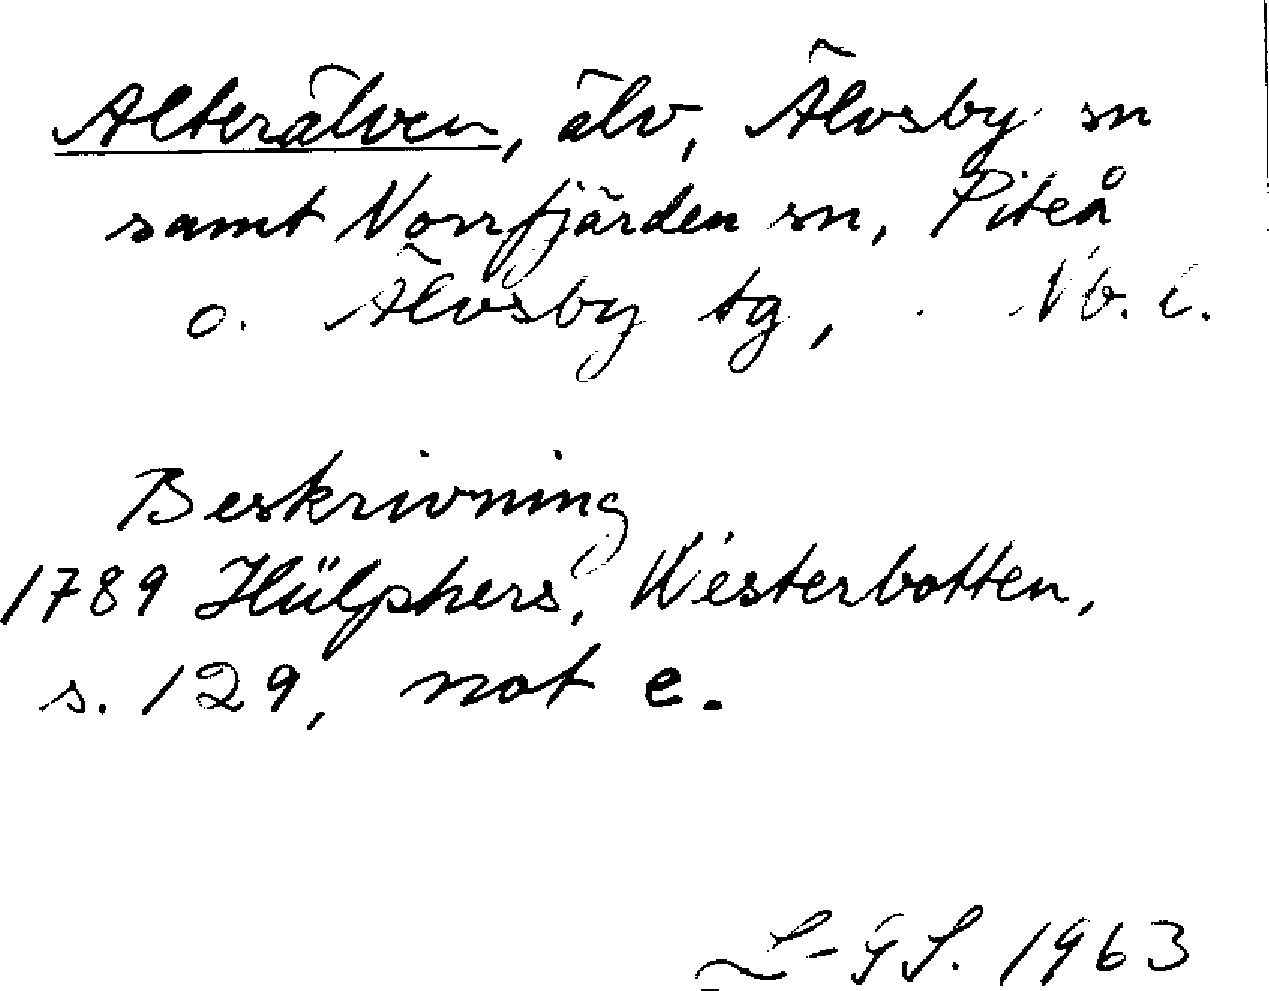 Alterälven, älv, Älvsby sn
samt Norrfjärden sn, Piteå
o. Älvsby tg, Nb. l.
Beskrivning
1789 Hülphers, Westerbotten,
s. 129, not e.
L-GS. 1963